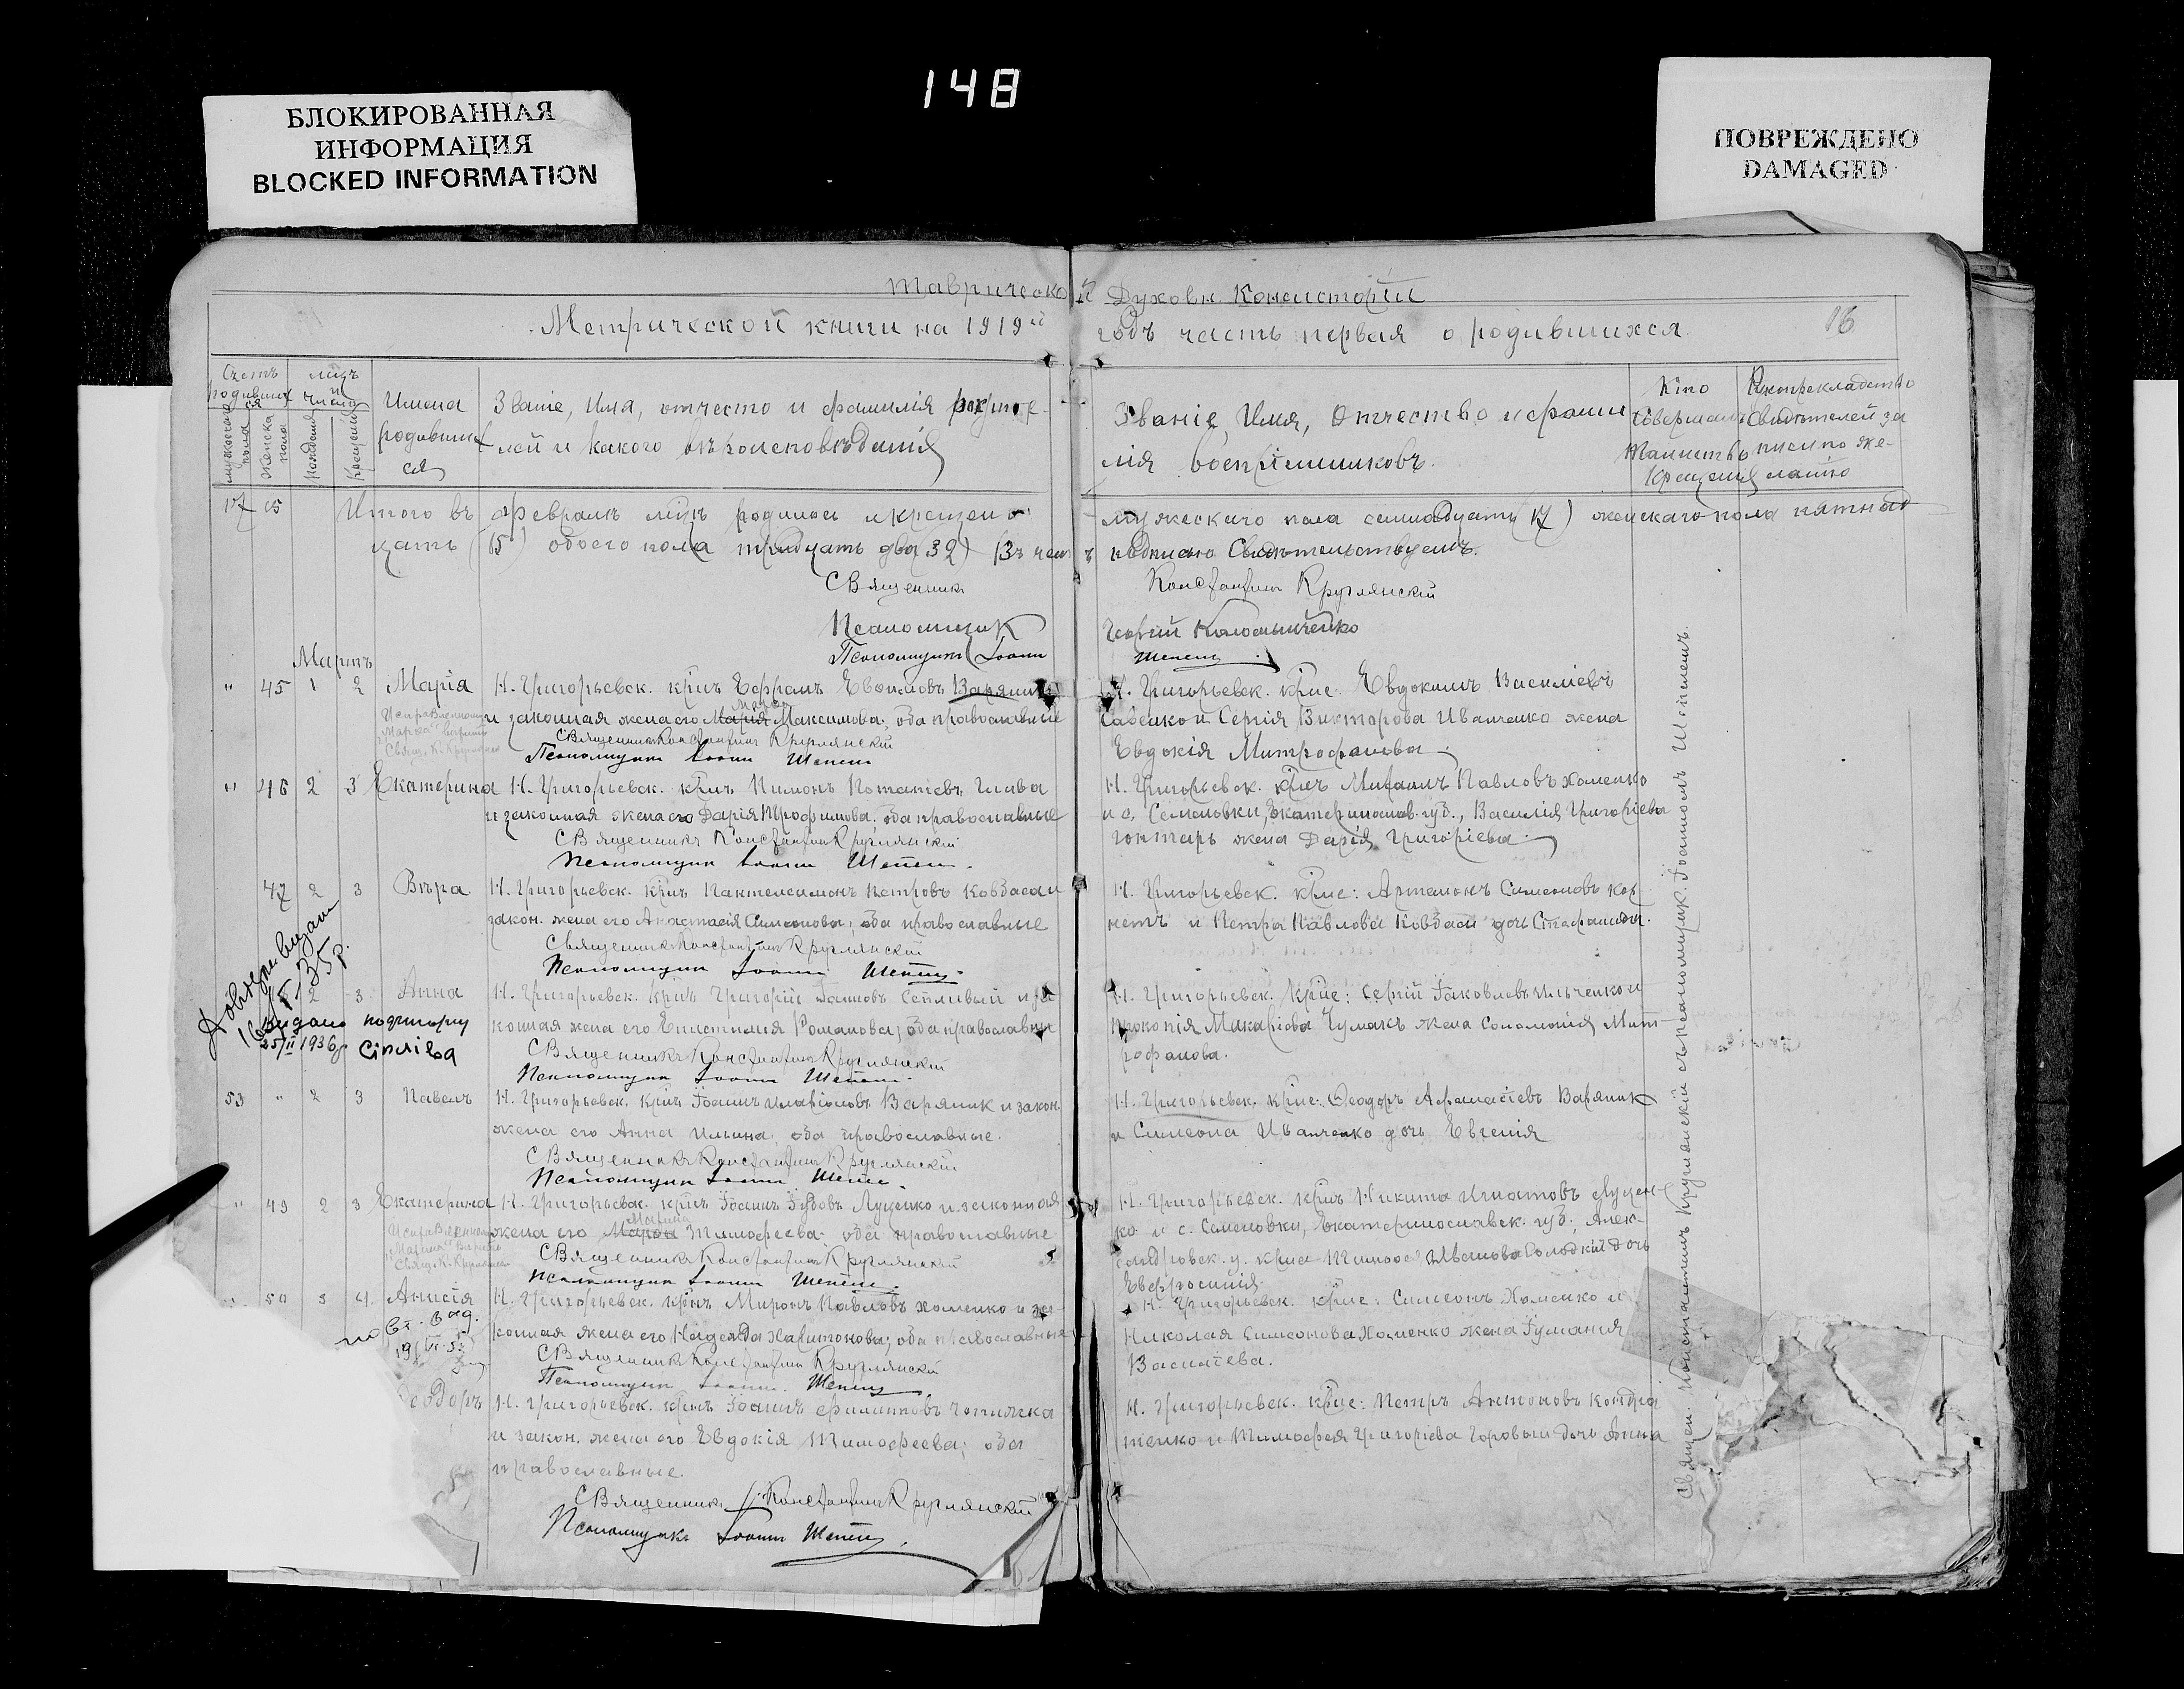 148
БЛОКИРОВАННАЯ
ИНФОРМАЦИЯ
BLOCKED INFORMATION
ПОВРЕЖДЕНО
DAMAGED
Таврическо й Духовн. Консисторіи
Метрической книги на 1919й годъ часть первая о родившихся.
16
Счетъ родившихся
мужескаго пола
женска пола
рожденія
крещенія
Имена родившихся
Званіе, Имя, отчество и фамилія
лей и какого вѣроисповѣданія
Званіе, Имя, Отчество и фами
лія воспріемниковъ.
Кто
Таинство
Крещенія
Свидѣтелей за
17 15 Итого въ Февралѣ родилось и крещено мужескаго пола семнадцать (17) женскаго пола пятнад
цать (15) обоего пола тридцать два 32) Въ чемъ подписью Свидѣтельствуемъ.
Священникъ Константинъ Круглянскій
Псаломщикъ Георгій Коломыйченко
Псаломщикъ Іоаннъ Шепель
Мартъ
" 45 1 2 Марія
Н. Григорьевск. крнъ Ефрамъ Варяникъ
Марфа
и законная жена его Мария Максимова, оба православные
Священникъ Константинъ Круглянскій
Псаломщикъ Іоаннъ Шепель
Н. Григорьевск. крне. Евдокимъ Василіевъ
Савенко и Сергія Викторова Иванченко жена
Евдокія Митрофанова
" 46 2 3 Екатерина
Н. Григорьевск. крнъ Пимонъ Потапіевъ
и законная жена его Дарія Трофимова, оба православные
Священникъ Константинъ Круглянскій
Псаломщикъ Іоаннъ Шепель.
Н. Григорьевск. крне Павловъ Хоменко
и с. Семеновки, Екатеринослав. губ., Василія Григоріева
Гонтарь жена Дарія Григоріева
47 2 3 Вѣра
Н. Григорьевск. крнъ Пантелеимонъ Петровъ Ковбаса и
закон. жена его Анастасія Симеонова, оба православные
Священникъ Константинъ Круглянскій
Псаломщикъ Іоаннъ Шепель.
Н. Григорьевск. крне: Артамонъ Симеоновъ
и Петра Павлова Ковбаси дочь Стефанида.
2 3 Анна
Видано
25/II 1936р Сіпліва
Н. Григорьевск. крнъ Григорій Іанновъ Сепливый и за
конная жена его Епистимія Романова, оба православные
Священникъ Константинъ Круглянскій
Псаломщикъ Іоаннъ Шепель.
Н. Григорьевск. крне: Сергій Іаковлевъ Ильченко и
Прокопія Макаріева Чумакъ жена Соломонія Мит
рофанова.
53 " 2 3 Павелъ
Н. Григорьевск. крнъ Іоаннъ Иларіоновъ Варяник и закон.
жена его Анна Ильина, оба православные.
Священникъ Константинъ Круглянскій
Псаломщикъ Іоаннъ Шепель.
Н. Григорьевск. крне. Ѳеодоръ Афанасіевъ Варяник
и Симеона Иванченко дочь Евгенія
" 49 2 3 Екатерина
Н. Григорьевск. крнъ Іоаннъ Луценко и законная
жена его Тимофеева, оба православные
Священникъ Константинъ Круглянскій
Псаломщикъ Іоаннъ Шепель.
Н. Григорьевск. крнъ Никита Игнатовъ Луцен
ко и с. Семеновки, Екатеринославск. губ., Алек
сандровск. у. крна Тимофея Иванова Солодкій дочь
Евфросинія
50 3 4 Анисія
Н. Григорьевск. крнъ Миронъ Павловъ Хоменко и за
конная жена его Надежда Харитонова, оба православные
Священникъ Константинъ Круглянскій
Псаломщикъ Іоаннъ Шепель
Н. Григорьевск. крне: Симеонъ Хоменко и
Николая Симеонова Хоменко жена Іуліанія
Василіева.
еодоръ
Н. Григорьевск. крнъ Іоаннъ Филипповъ
и закон. жена его Евдокія Тимофеева, оба
православные.
Священникъ Константинъ Круглянскій
Псаломщикъ Іоаннъ Шепель
Н. Григорьевск. крне: Петръ Антоновъ Кондра
тенко и Тимофея Григоріева Горовый дочь Анна
Священ. Константинъ Круглянскій съ псаломщик. Іоанномъ Шепелемъ.